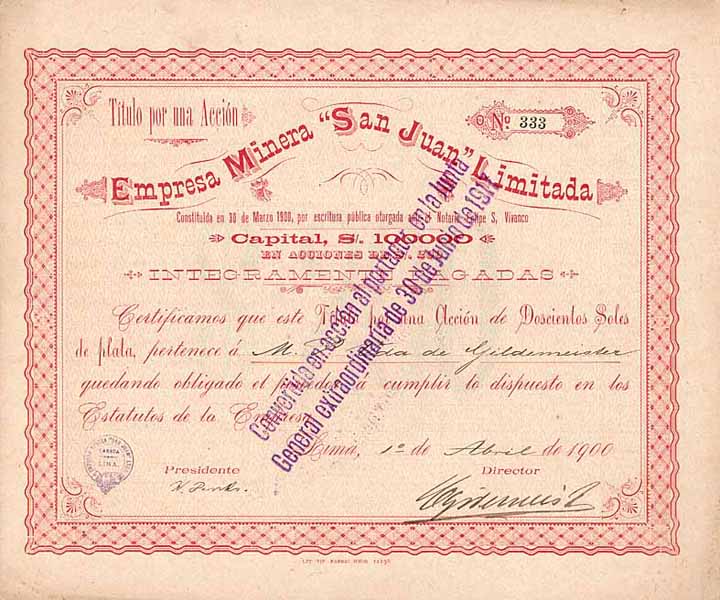 Título por una Acción
Nº 333
Empresa Minera "San Juan" Limitada
Constituída en 30 de Marzo 1900, por escritura pública otorgada ante el Notario Felipe S. Vivanco
Capital, S/. 100000
EN ACCIONES DE
INTEGRAMENTE PAGADAS
Certificamos que este Título por una Acción de Doscientos Soles
de plata, pertenece á M. de Gildemeister
quedando obligado el poseedor á cumplir lo dispuesto en los
Estatutos de la Empresa
Lima, 1º de Abril de 1900
Presidente
Director
Convertida en acción al portador, en la Junta
General extraordinaria de 30 de Junio de
LIMA